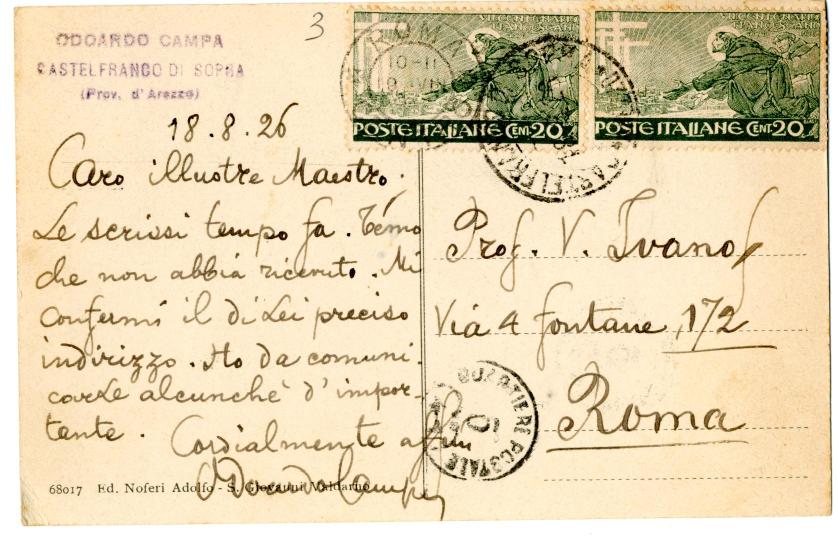 ODOARDO CAMPA
CASTELFRANCO DI SOPRA
(Prov. d'Arezzo)
3
18.8.26
Caro illustre Maestro.
Le scrissi tempo fa. Temo
che non abbia ricevuto. Mi
confermi il di Lei preciso
indirizzo. Ho da comuni-
carLe alcunchè d'impor-
tante.
Cordialmente
Odoardo Campa
68017 Ed. Noferi Adolfo - S. Giovanni Valdarno
VII CENTENARIO
FRANCESCANO
POSTE ITALIANE CENT. 20
VII CENTENARIO
FRANCESCANO
POSTE ITALIANE CENT. 20
ROMA
10-11
CASTELFRANCO
Prof. V. Ivanof
Via 4 fontane, 172
Roma
PORTALETTERE POSTALE